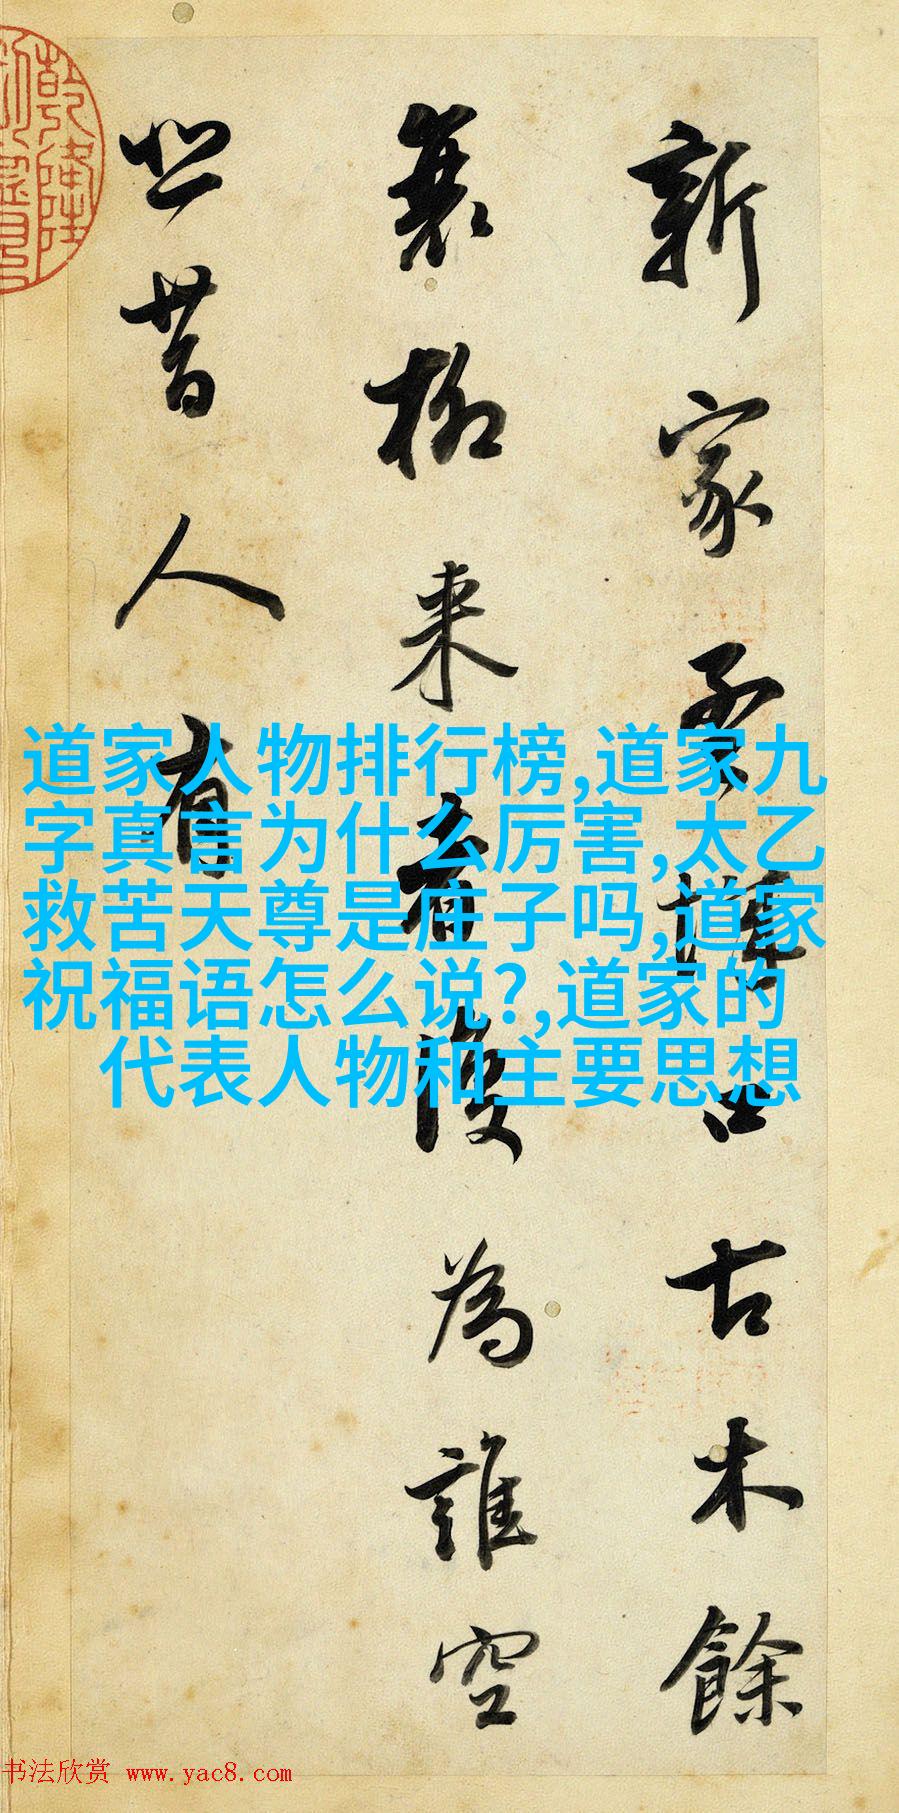 新家孟城口古木餘
衰柳来者復為誰空
悲昔人有
道家人物排行榜,道家九
字真言为什么厉害,太乙
救苦天尊是庄子吗,道家
祝福语怎么说?,道家的
代表人物和主要思想
书法欣赏 www.yac8.com